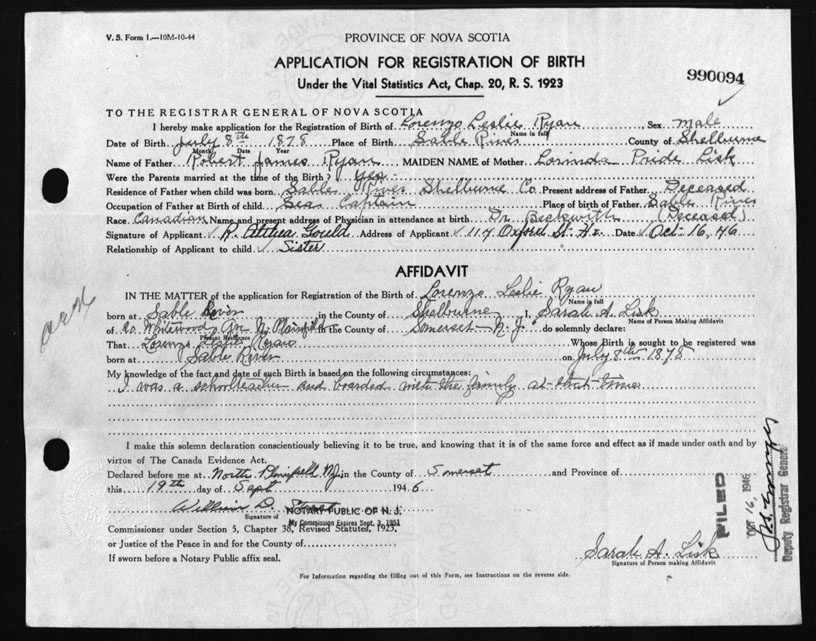 V. S. Form 1.—10M-10-44
PROVINCE OF NOVA SCOTIA
APPLICATION FOR REGISTRATION OF BIRTH
990094
Under the Vital Statistics Act, Chap. 20, R. S. 1923
TO THE REGISTRAR GENERAL OF NOVA SCOTIA
I hereby make application for the Registration of Birth of Lorenzo Leslie Ryan Sex male
Name in full
Date of Birth July 8th 1878 Place of Birth Sable River County of Shelburne
Month Date Year
Name of Father Robert James Ryan MAIDEN NAME of Mother Lorinda Pride Lisk
Were the Parents married at the time of the Birth? Yes
Residence of Father when child was born Sable River Shelburne Co. Present address of Father Deceased
Occupation of Father at Birth of child Sea Captain Place of birth of Father Sable River
Race Canadian Name and present address of Physician in attendance at birth Dr Beckwith (Deceased)
Signature of Applicant R. Althea Gould Address of Applicant 117 Oxford St. Hx. Date Oct. 16, 46
Relationship of Applicant to child Sister
AFFIDAVIT
IN THE MATTER of the application for Registration of the Birth of Lorenzo Leslie Ryan
Name in full
born at Sable River in the County of Shelburne I, Sarah A. Lisk
Name of Person Making Affidavit
of Whitewood N. Plainfield in the County of Somerset N. J. do solemnly declare:
Present Residence
That Lorenzo Leslie Ryan Whose Birth is sought to be registered was
born at Sable River on July 8th 1878
My knowledge of the fact and date of such Birth is based on the following circumstances:
I was a schoolteacher and boarded with the family at that time
I make this solemn declaration conscientiously believing it to be true, and knowing that it is of the same force and effect as if made under oath and by
virtue of The Canada Evidence Act.
Declared before me at North Plainfield N.J. in the County of Somerset and Province of
this 19th day of Sept 1946
William D.
Signature of
NOTARY PUBLIC OF N. J.
My Commission Expires Sept. 3, 1951
Commissioner under Section 5, Chapter 38, Revised Statutes, 1923,
or Justice of the Peace in and for the County of
If sworn before a Notary Public affix seal.
Sarah A. Lisk
Signature of Person making Affidavit
For Information regarding the filling out of this Form, see Instructions on the reverse side.
FILED
OCT 16, 1946
Deputy Registrar General